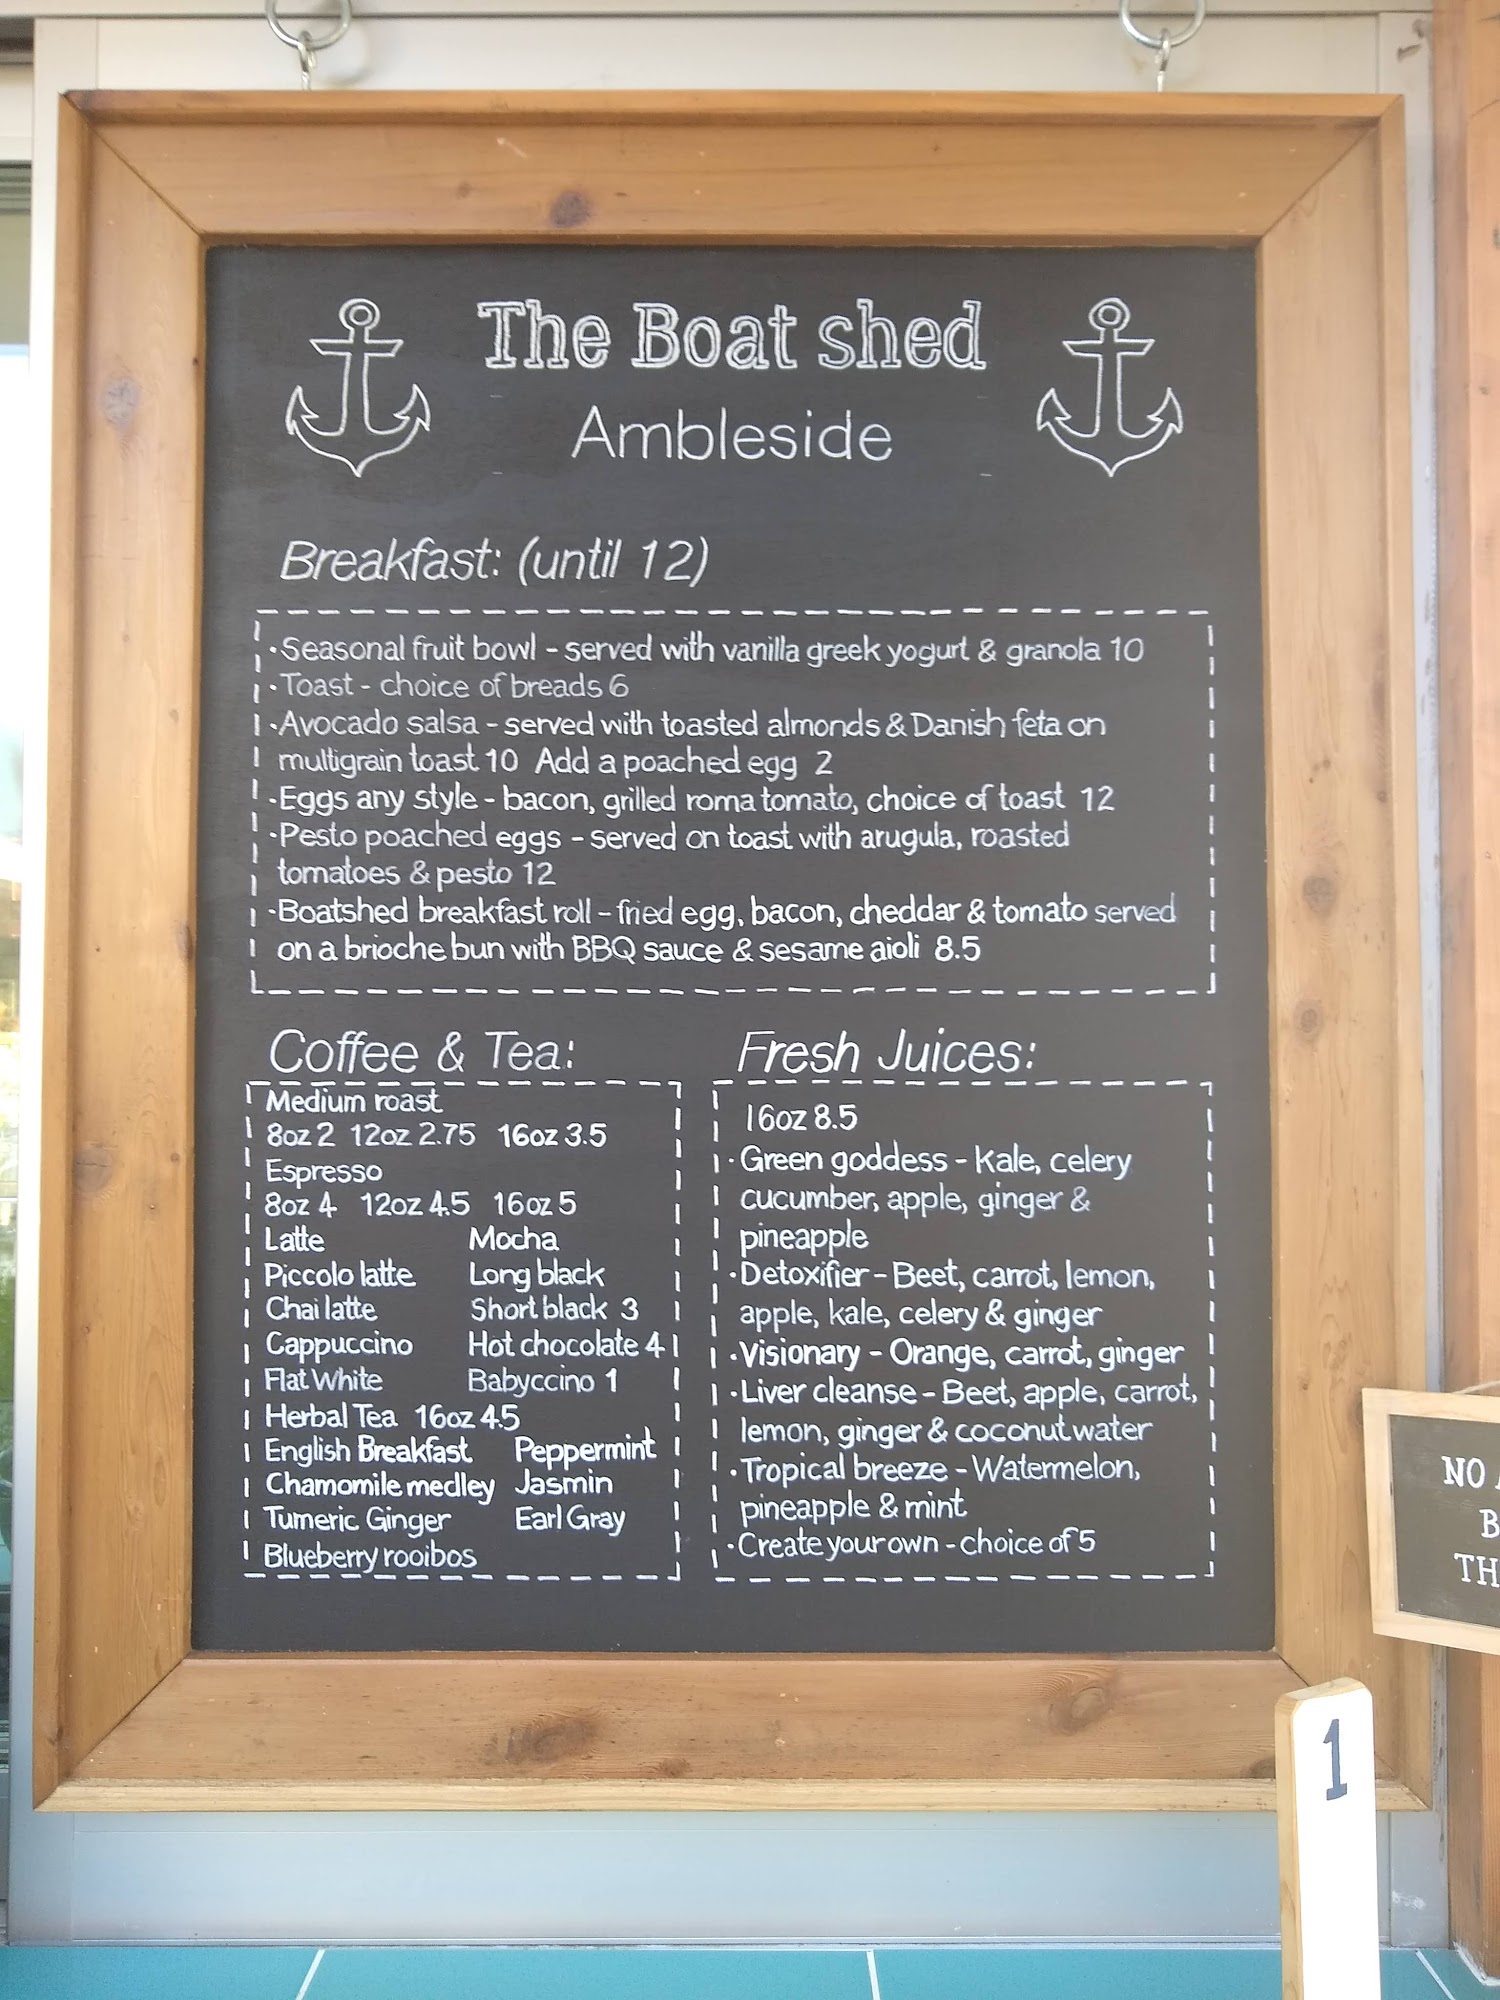 The Boat shed
Ambleside
Breakfast: (until 12)
·Seasonal fruit bowl - served with vanilla greek yogurt & granola 10
·Toast - choice of breads 6
·Avocado salsa - served with toasted almonds & Danish feta on
multigrain toast 10 Add a poached egg 2
·Eggs any style - bacon, grilled roma tomato, choice of toast 12
·Pesto poached eggs - served on toast with arugula, roasted
tomatoes & pesto 12
·Boatshed breakfast roll - fried egg, bacon, cheddar & tomato served
on a brioche bun with BBQ sauce & sesame aioli 8.5
Coffee & Tea:
Medium roast
8oz 2 12oz 2.75 16oz 3.5
Espresso
8oz 4 12oz 4.5 16oz 5
Latte Mocha
Piccolo latte Long black
Chai latte Short black 3
Cappuccino Hot chocolate 4
Flat White Babyccino 1
Herbal Tea 16oz 4.5
English Breakfast Peppermint
Chamomile medley Jasmin
Tumeric Ginger Earl Gray
Blueberry rooibos
Fresh Juices:
16oz 8.5
·Green goddess - Kale, celery
cucumber, apple, ginger &
pineapple
·Detoxifier - Beet, carrot, lemon,
apple, kale, celery & ginger
·Visionary - Orange, carrot, ginger
·Liver cleanse - Beet, apple, carrot,
lemon, ginger & coconut water
·Tropical breeze - Watermelon,
pineapple & mint
·Create your own - choice of 5
NO
1